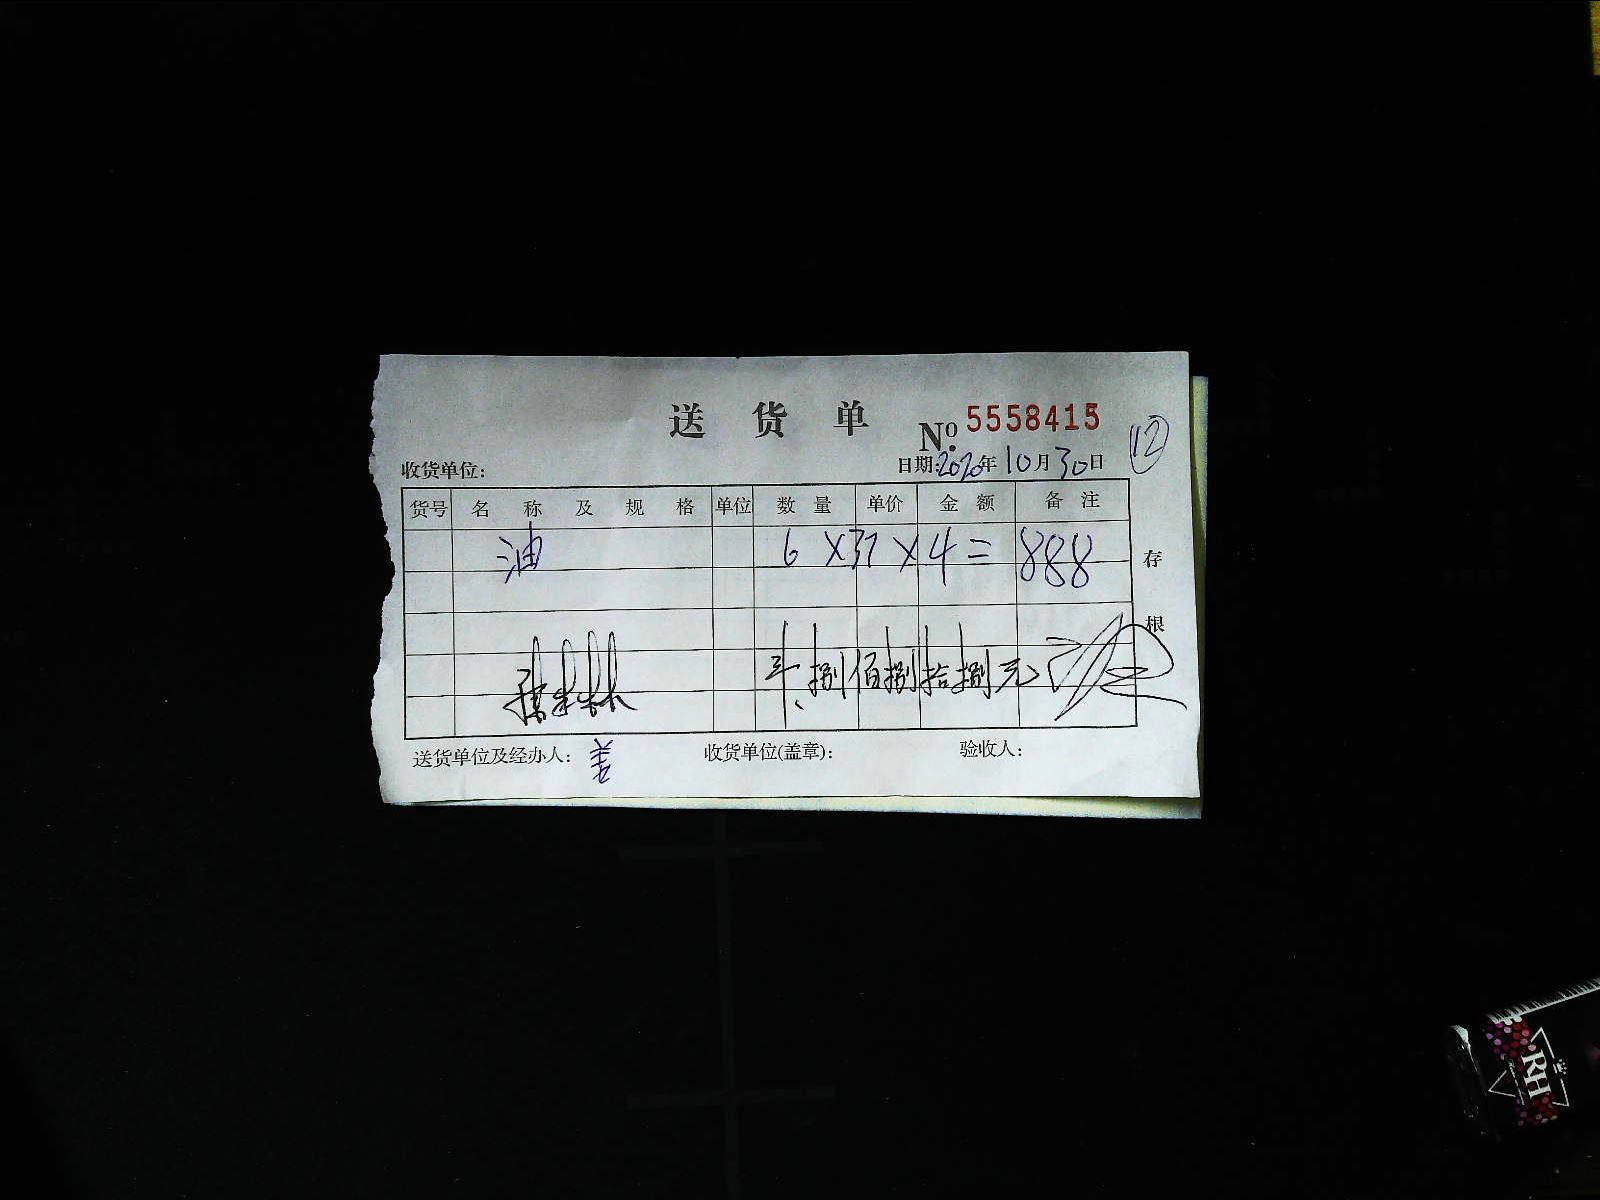 送货单
No. 5558415
收货单位: 日期:2020年10月30日 12
货号 名称及规格 单位 数量 单价 金额 备注
油 6×37×4=888
存根
捌佰捌拾捌元
送货单位及经办人: 收货单位(盖章): 验收人:
RH